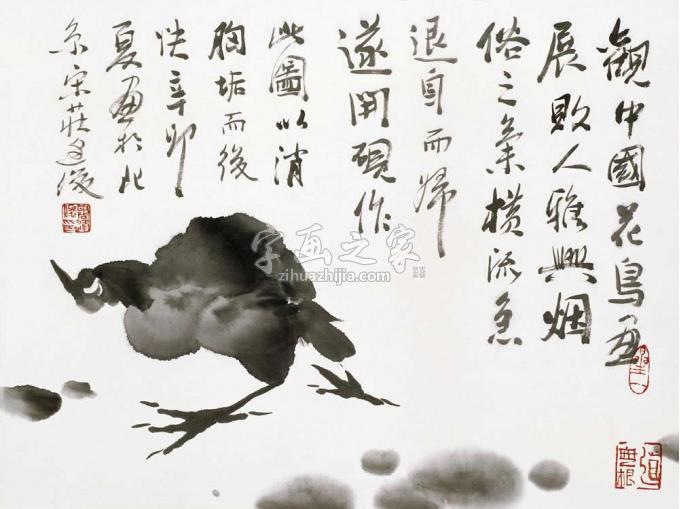 觀中國花鳥畫
展敗人雅興烟
俗之氣橫流急
退身而歸
遂開硯作
此圖以消
胸垢而後
快辛卯
夏畫於北
京宋莊逢俊
字画之家
zihuazhijia.com